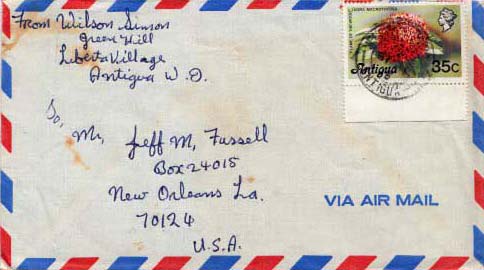 From Wilson Simon
Green Hill
Liberta Village
Antigua W.I.
To, Mr, Jeff M, Fussell
Box 24015
New Orleans La.
70124
U.S.A.
IXORA MACROTHYRSA
Antigua 35c
ANTIGUA
VIA AIR MAIL